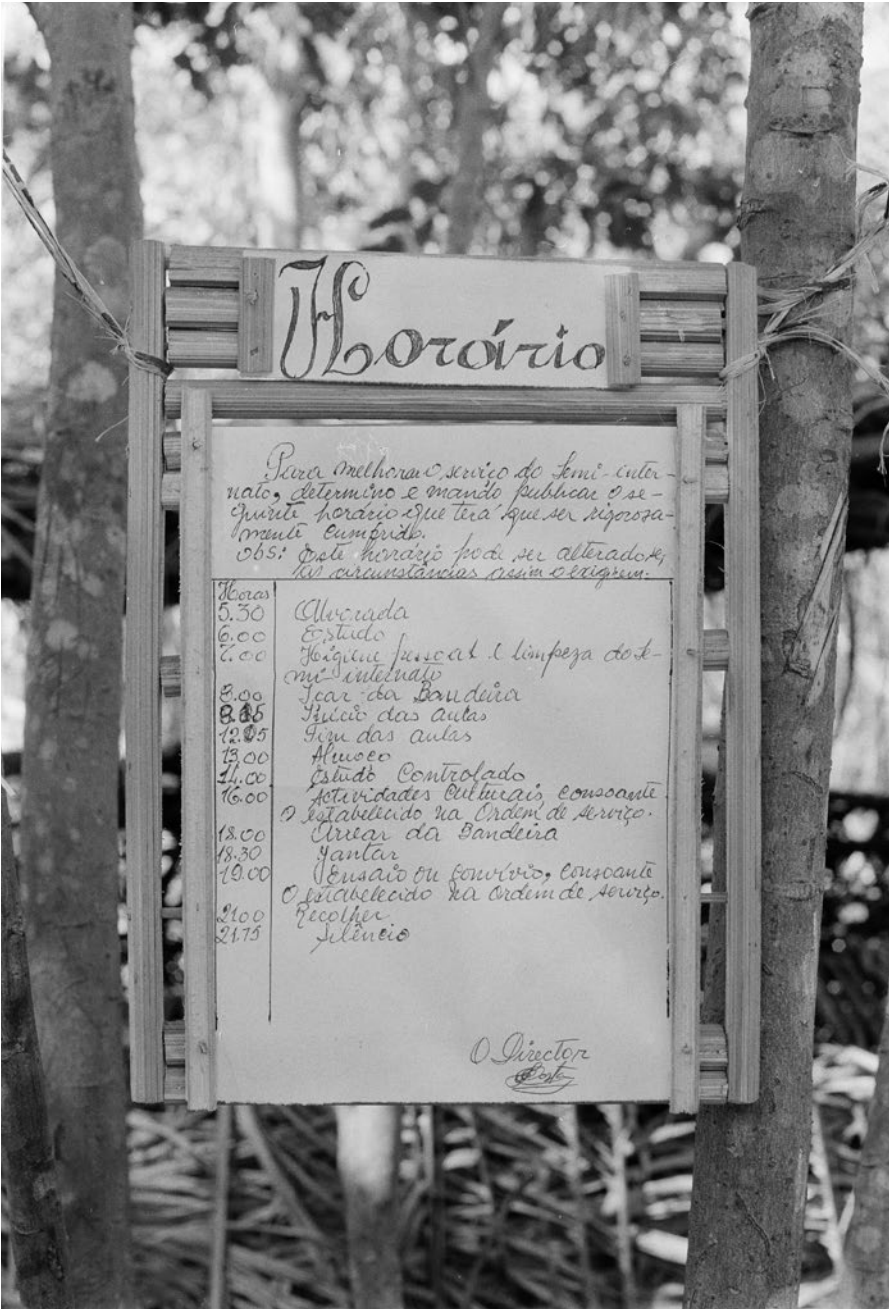 Horário
Para melhorar o serviço do Semi-inter-
nato, determino e mando publicar o se-
guinte horário que terá que ser rigorosa-
mente cumprido.
Obs: Este horário pode ser alterado se,
as circunstâncias assim o exigirem.
Horas
5.30 Alvorada
6.00 Estudo
7.00 Higiene pessoal e limpeza do Se-
mi-internato
8.00 Içar da Bandeira
8.15 Início das aulas
12.05 Fim das aulas
13.00 Almoço
14.00 Estudo Controlado
16.00 Actividades Culturais, consoante
O estabelecido na Ordem de serviço.
18.00 Arrear da Bandeira
18.30 Jantar
19.00 Ensaio ou convívio, consoante
O estabelecido na Ordem de serviço.
21.00 Recolher
21.15 Silêncio
O Director